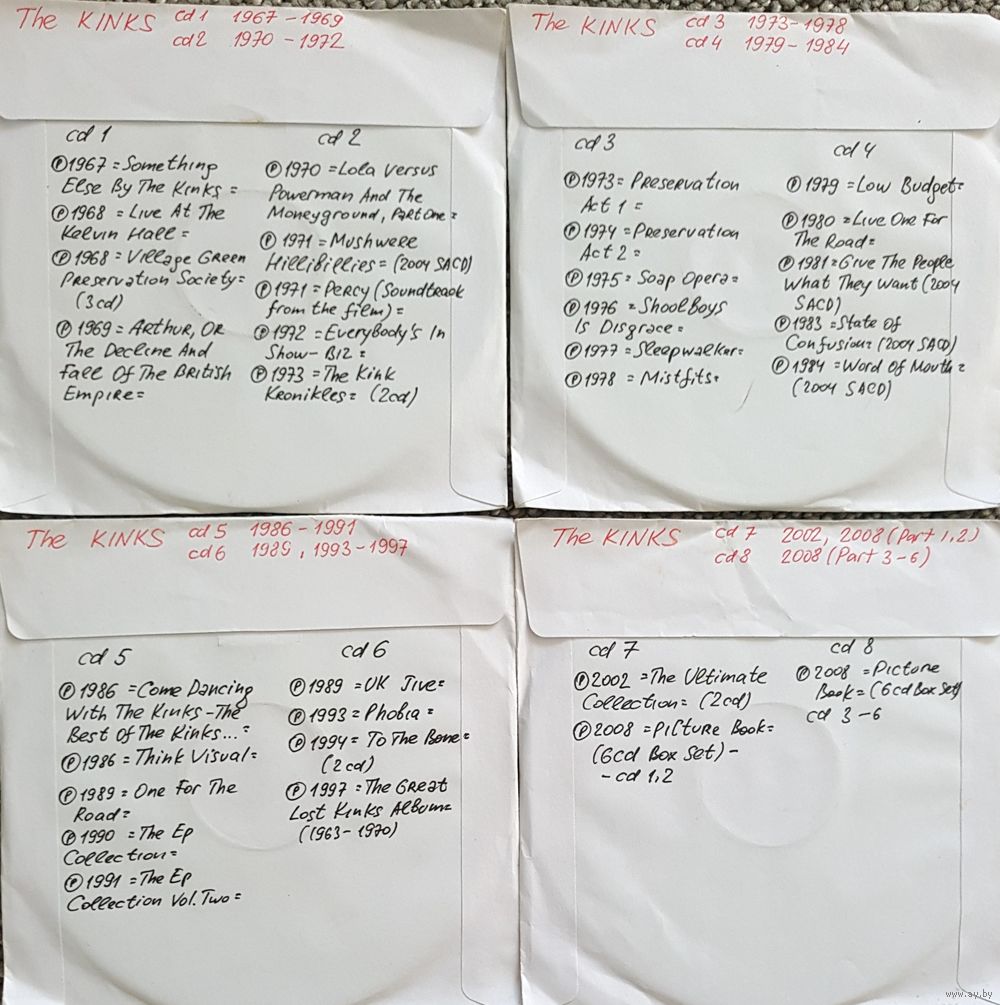 The KINKS cd 1 1967 - 1969
cd 2 1970 - 1972
cd 1
Ⓟ 1967 = Something
Else By The Kinks =
Ⓟ 1968 = Live At The
Kelvin Hall =
Ⓟ 1968 = Village Green
Preservation Society =
(3cd)
Ⓟ 1969 = Arthur, Or
The Decline And
Fall Of The British
Empire =
cd 2
Ⓟ 1970 = Lola Versus
Powerman And The
Moneyground, Part One =
Ⓟ 1971 = Mushwere
Hillibillies = (2004 SACD)
Ⓟ 1971 = Percy (Soundtrack
from the film) =
Ⓟ 1972 = Everybody's In
Show-Biz =
Ⓟ 1973 = The Kink
Kronikles = (2cd)
The KINKS cd 3 1973-1978
cd 4 1979-1984
cd 3
Ⓟ 1973 = Preservation
Act 1 =
Ⓟ 1974 = Preservation
Act 2 =
Ⓟ 1975 = Soap Opera =
Ⓟ 1976 = Shoolboys
Is Disgrace =
Ⓟ 1977 = Sleepwalker =
Ⓟ 1978 = Mistfits =
cd 4
Ⓟ 1979 = Low Budget =
Ⓟ 1980 = Live One For
The Road =
Ⓟ 1981 = Give The People
What They Want (2004
SACD)
Ⓟ 1983 = State Of
Confusion = (2004 SACD)
Ⓟ 1984 = Word Of Mouth =
(2004 SACD)
The KINKS cd 5 1986 - 1991
cd 6 1989, 1993-1997
cd 5
Ⓟ 1986 = Come Dancing
With The Kinks - The
Best Of The Kinks... =
Ⓟ 1986 = Think Visual =
Ⓟ 1989 = One For The
Road =
Ⓟ 1990 = The Ep
Collection =
Ⓟ 1991 = The Ep
Collection Vol. Two =
cd 6
Ⓟ 1989 = UK Jive =
Ⓟ 1993 = Phobia =
Ⓟ 1994 = To The Bone =
(2cd)
Ⓟ 1997 = The Great
Lost Kinks Album =
(1963-1970)
The KINKS cd 7 2002, 2008 (Part 1,2)
cd 8 2008 (Part 3-6)
cd 7
Ⓟ 2002 = The Ultimate
Collection = (2cd)
Ⓟ 2008 = Picture Book =
(6cd Box Set) -
- cd 1,2
cd 8
Ⓟ 2008 = Picture
Book = (6cd Box Set)
cd 3-6
www.ay.by